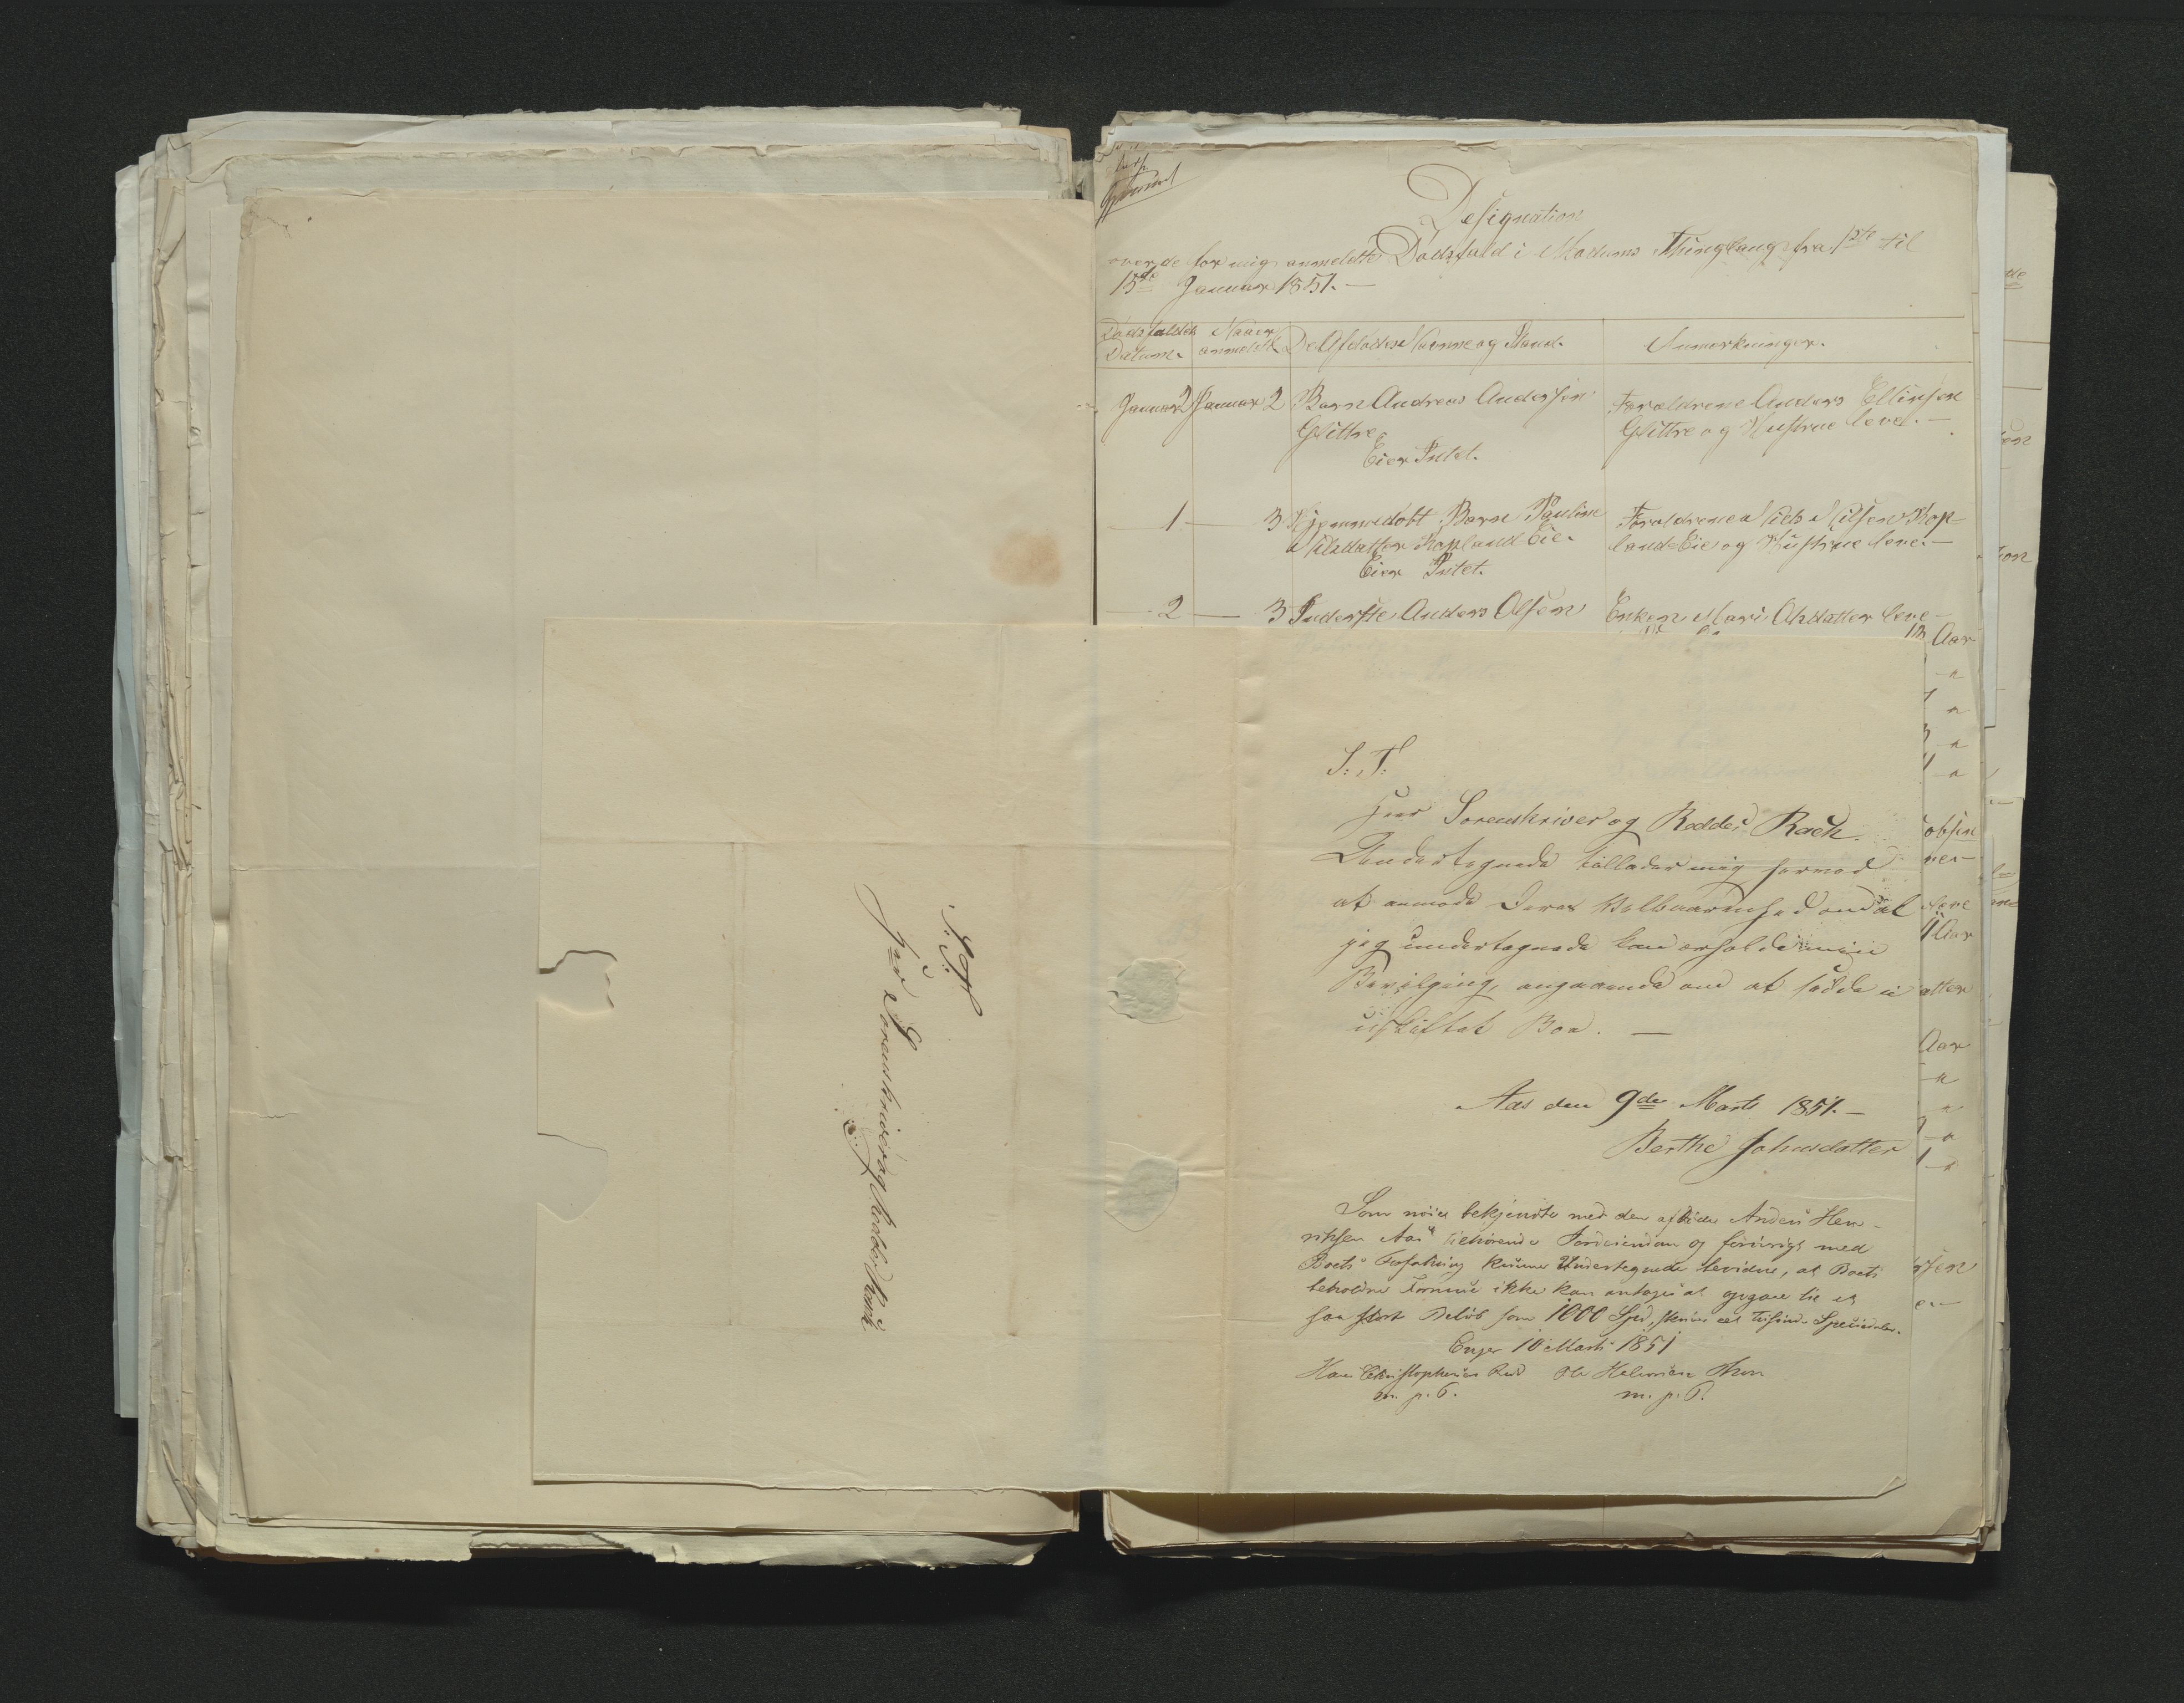 Designation
over de for mig anmeldte Dødsfald i Modums Thinglaug fra 1ste til
15de Januar 1851. —
Dødsfaldets Datum.
Naar anmeldt
De Afdødes Navne og Stand.
Anmerkninger.
Januar 2 Januar 2 Barn Andreas Andersen
Glittre
Eier Intet.
Forældrene Anders Ellingsen
Glittre og Hustrue leve. —
— 1 — 3 Hjemmedøbt Barn Pauline
Nilsdatter Kopland Eie.
Eier Intet.
Forældrene Nils Nilsen Kop-
land Eie og Hustrue leve. —
— 2 — 3 Inderste Anders Olsen
Enken Mari Olsdatter leve
13 Aar
S. T.
Herr Sorenskriver og Ridder Bach.
Undertegnede tillader mig herved
at anmode Deres Velbaarenhed om at
jeg undertegnede kan erholde min
Bevilgning, angaaende om at sidde i
uskiftet Boe. —
Aas den 9de Marts 1851. —
Berthe Johnsdatter
Som nøie bekjendte med den afdøde Anders Hen-
riksen Aas tilhørende Jordeiendom og forøvrigt med
Boets Forfatning kunne Undertegnede bevidne, at Boets
beholdne Formue ikke kan antages at opgaae til et
saa stort Beløb som 1000 Spd, skriver eet Tusinde Speciedaler.
Enger 10 Marts 1851
Hans Christophersen
m. p. P.
Ole Halvorsen
m. p. P.
S. T.
Herr Sorenskriver og Ridder Bach